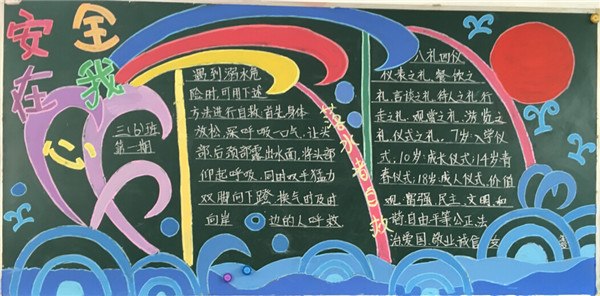 安全
在我
心
三(3)班
第一期
遇到溺水危
险时,可用下述
方法进行自救:首先身体
放松,深呼吸一口气,让头
部后颈部露出水面,将头部
仰起呼吸,同时双手猛力
双脚向下蹬,换气时及时
向岸 边的人呼救
溺水者自救
八礼四仪
仪表之礼、餐饮之
礼、言谈之礼、待人之礼、行
走之礼、观赏之礼、游览之
礼、仪式之礼。7岁入学仪
式,10岁成长仪式;14岁青
春仪式;18岁成人仪式,价值
观:富强、民主、文明、和
谐、自由、平等公正、法
治爱国、敬业、诚信、友 善